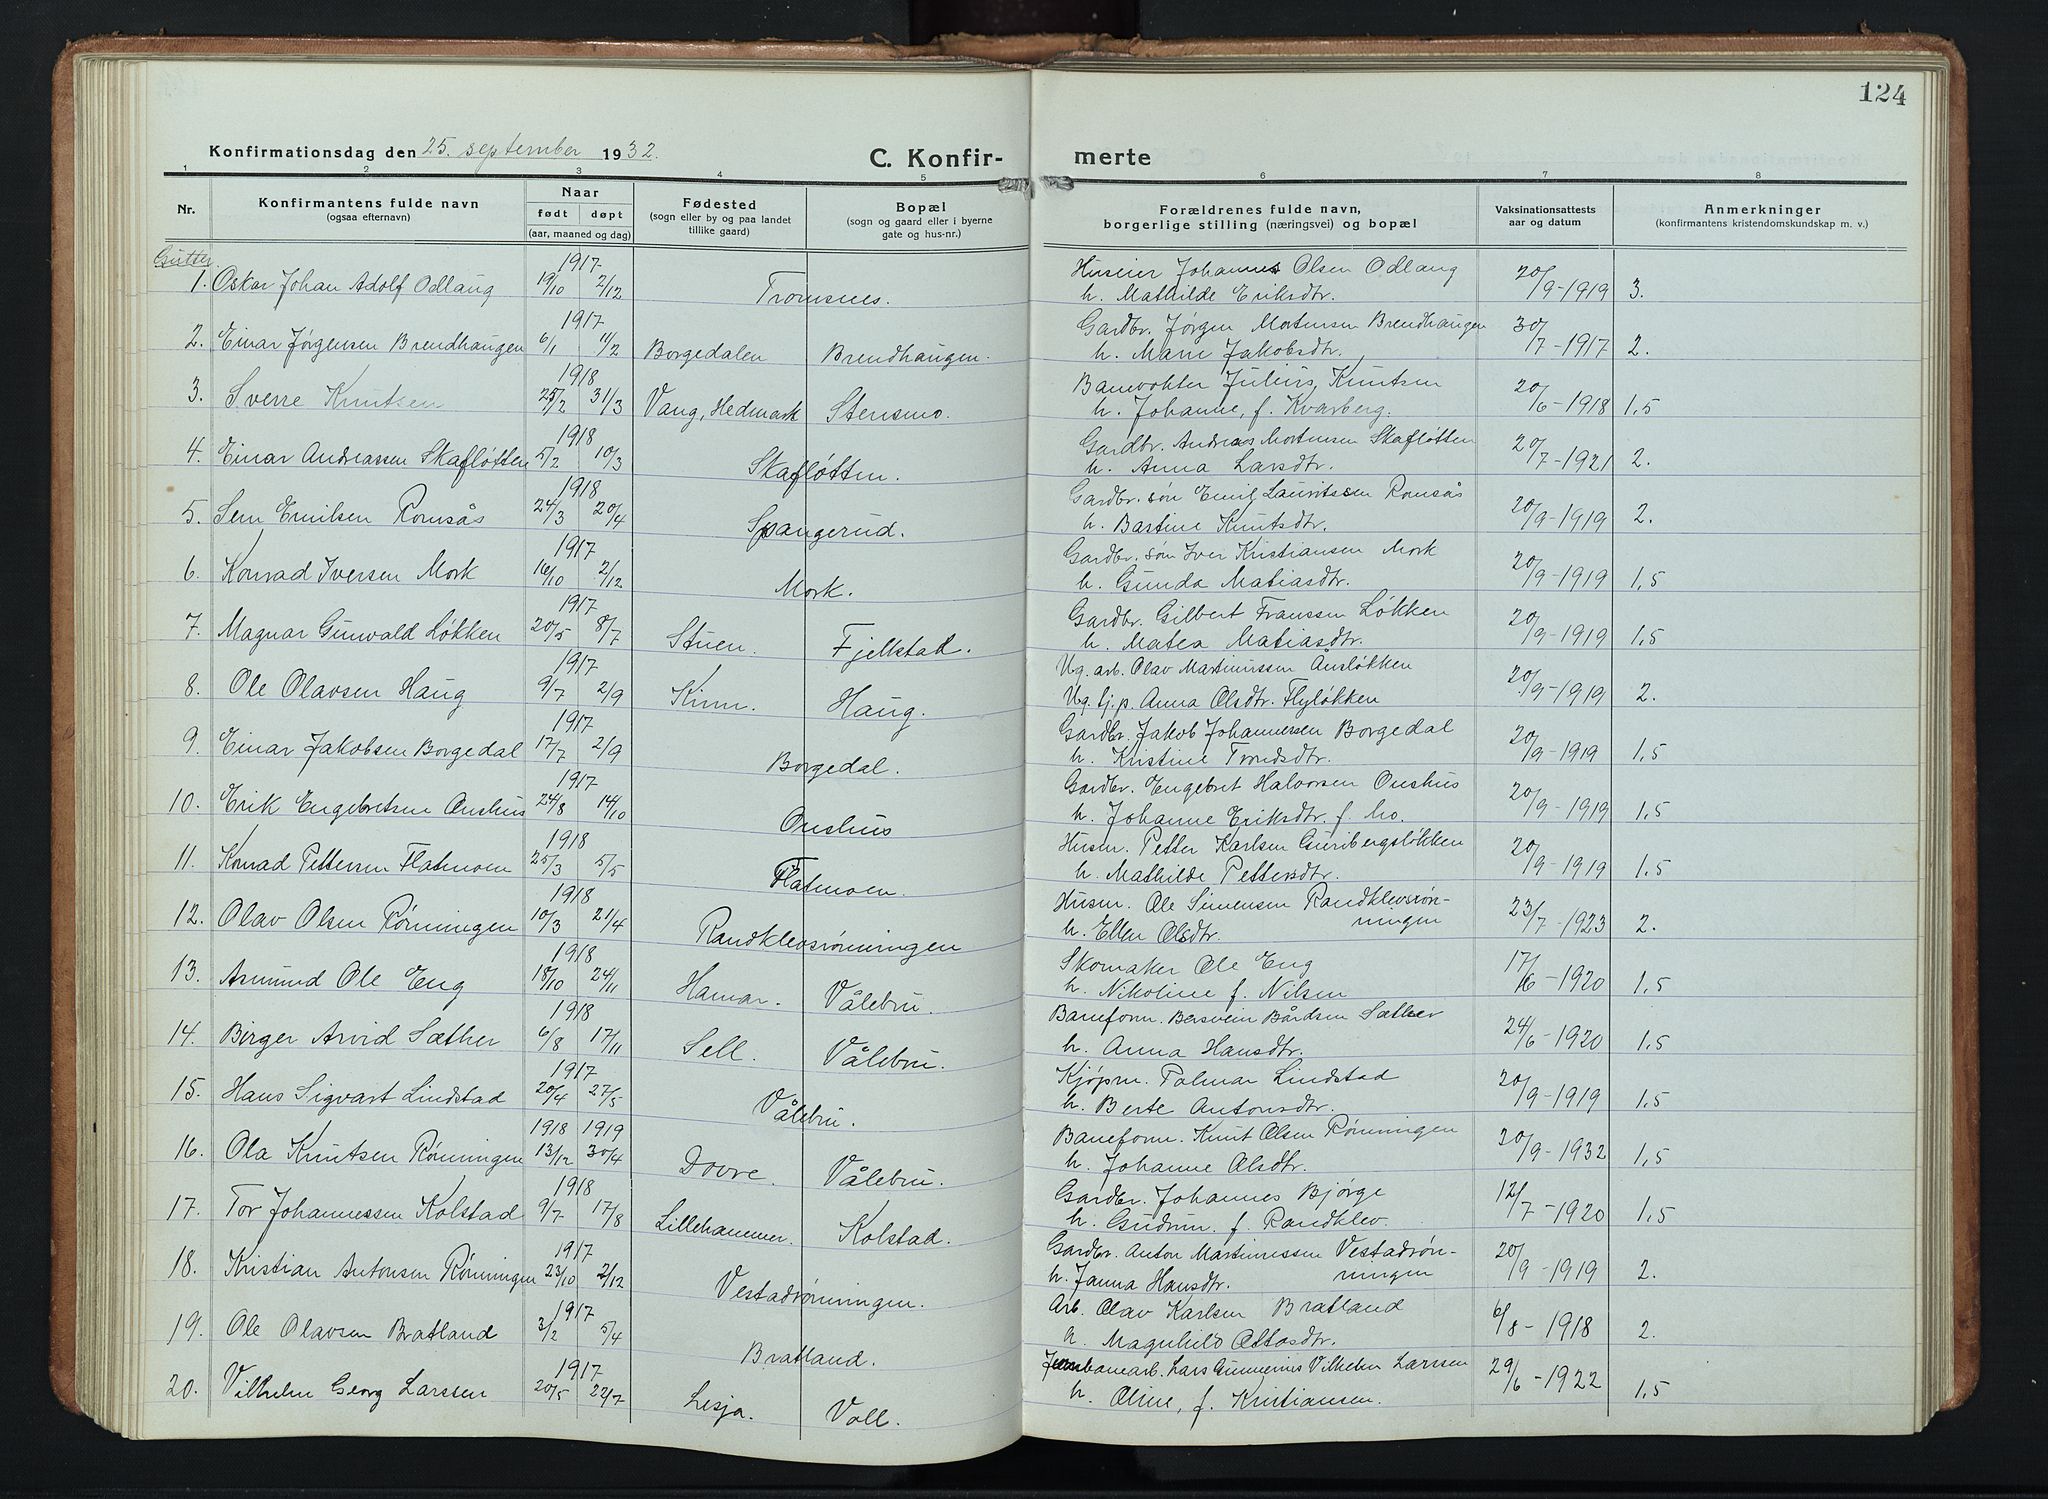 124
Konfirmationsdag den 25. september 1932.
C. Konfir- merte
1 2 3 4 5 6 7 8
Nr.
Konfirmantens fulde navn
(ogsaa efternavn)
Naar
født døpt
(aar, maaned og dag)
Fødested
(sogn eller by og paa landet
tillike gaard)
Bopæl
(sogn og gaard eller i byerne
gate og hus-nr.)
Forældrenes fulde navn,
borgerlige stilling (næringsvei) og bopæl
Vaksinationsattests
aar og datum
Anmerkninger
(konfirmantens kristendomskundskap m. v.)
Gutter
1917 Huseier Johannes Olsen Odlaug
1. Oskar Johan Adolf Odlaug 19/10 2/12 Tromsnes. h. Mathilde Eriksdtr. 20/9-1919 3.
1917 Gardbr. Jørgen Mortensen Brendhaugen
2. Einar Jørgensen Brendhaugen 6/1 11/2 Borgedalen Brendhaugen. h. Marie Jakobsdtr. 30/7-1917 2.
1918 Banevokter Julius Knutsen
3. Sverre Knutsen 25/2 31/3 Vang, Hedmark Stensmo. h. Johanne, f. Kvarberg. 20/6-1918 1,5
1918 Gardbr. Andreas Mortensen Skafløtten
4. Einar Andreassen Skafløtten 5/2 10/3 Skafløtten. h. Anna Larsdtr. 20/7-1921 2.
1918 Gardbr. søn Emil Lauritssen Romsås
5. Sem Emilsen Romsås 24/3 20/4 Spangerud. h. Bastine Knutsdtr. 20/9-1919 2.
1917 Gardbr. søn Iver Kristiansen Mork
6. Konrad Iversen Mork 16/10 2/12 Mork. h. Gunda Matiasdtr. 20/9-1919 1,5
1917 Gardbr. Gilbert Franssen Løkken
7. Magnar Gunvald Løkken 20/5 8/7 Stuen. Fjellstad. h. Matea Matiasdtr. 20/9-1919 1,5
1917 Ug. arb. Olav Martinussen Ånsløkken
8. Ole Olavsen Haug 9/7 2/9 Kinn. Haug. Ug. tj.p. Anna Olsdtr. Flyløkken 20/9-1919 2.
1917 Gardbr. Jakob Johannessen Borgedal
9. Einar Jakobsen Borgedal 17/7 2/9 Borgedal. h. Kristine Trondsdtr. 20/9-1919 1,5
1917 Gardbr. Engebret Halvorsen Onshus
10. Erik Engebretsen Onshus 24/8 14/10 Onshus h. Johanne Eriksdtr. f. Mo. 20/9-1919 1,5
1918 Husm. Petter Karlsen Guribergsløkken
11. Konrad Pettersen Flatmoen 25/3 5/5 Flatmoen. h. Mathilde Pettersdtr. 20/9-1919 1,5
1918 Husm. Ole Simensen Randklevsrøn-
ningen
12. Olav Olsen Rønningen 10/3 21/4 Randklevsrønningen h. Ellen Olsdtr. 23/7-1923 2.
1918 Skomaker Ole Eng
13. Asmund Ole Eng 18/10 24/11 Hamar. Vålebru. h. Nikoline f. Nilsen 17/6-1920 1,5
1918 Baneform. Bersvein Bårdsen Sæther
14. Birger Arvid Sæther 6/8 17/11 Sell. Vålebru. h. Anna Hansdtr. 24/6-1920 1,5
1917 Kjøpm. Palmar Lindstad
15. Hans Sigvart Lindstad 20/4 27/5 Vålebru. h. Berte Antonsdtr. 20/9-1919 1,5
1918 1919 Baneform. Knut Olsen Rønningen
16. Ola Knutsen Rønningen 13/12 30/4 Dovre. Vålebru. h. Johanne Olsdtr. 20/9-1932 1,5
1918 Gardbr. Johannes Bjørge
17. Tor Johannessen Kolstad 9/7 17/8 Lillehammer. Kolstad. h. Gudrun. f. Randklev. 12/7-1920 1,5
1917 Gardbr. Anton Martinussen Vestadrøn-
ningen
18. Kristian Antonsen Rønningen 23/10 2/12 Vestadrønningen. h. Janna Hansdtr. 20/9-1919 2.
1917 Arb. Olav Karlsen Bratland
19. Ole Olavsen Bratland 3/2 5/4 Bratland. h. Magnhild Ottosdtr. 6/8-1918 2.
1917 Jernbanearb. Lars Gunnerius Vilhelm Larssen
20. Vilhelm Georg Larssen 20/5 22/7 Lesja. Voll. h. Oline, f. Kristiansen. 29/6-1922 1,5